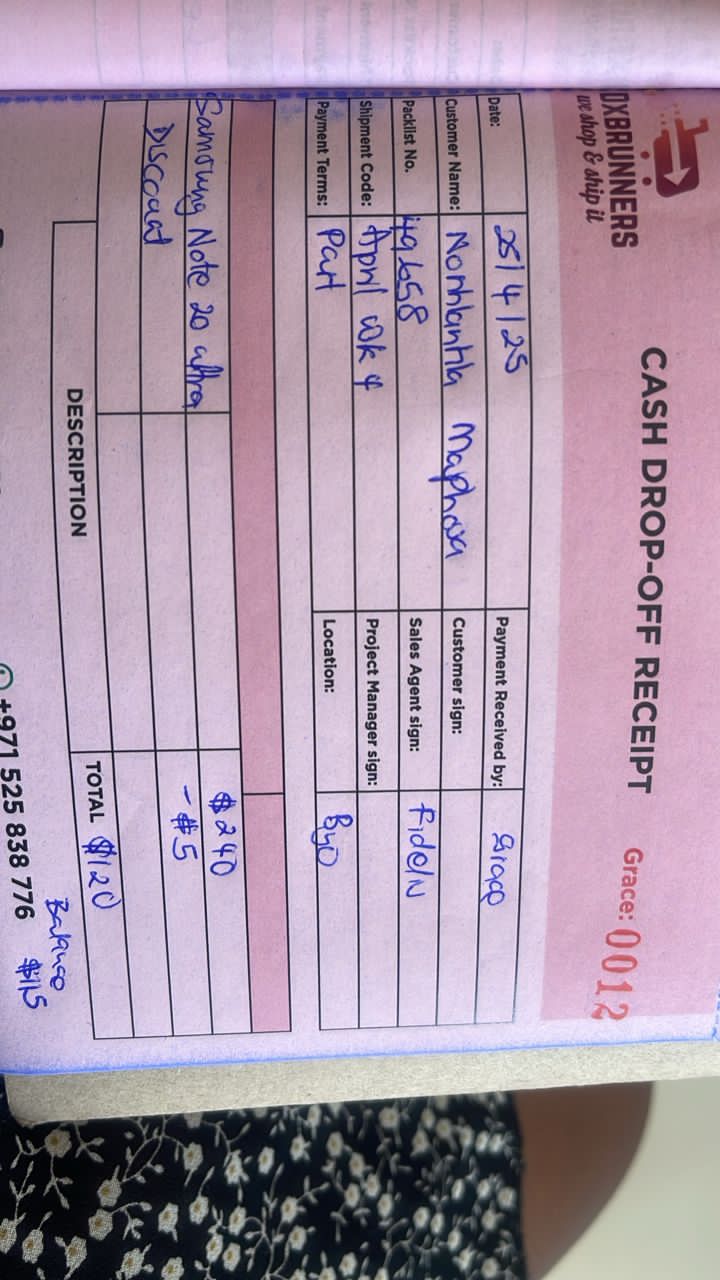 DXBRUNNERS
we shop & ship it
CASH DROP-OFF RECEIPT
Grace: 0012
Date: 25/4/25 Payment Received by: Grace
Customer Name: Nonhlanhla Maphosa Customer sign:
Packlist No. 49658 Sales Agent sign: Fidein
Shipment Code: April wk 4 Project Manager sign:
Payment Terms: Part Location: Byo
Samsung Note 20 ultra $240
Discount - $5
DESCRIPTION TOTAL $120
Balance $115
+971 525 838 776